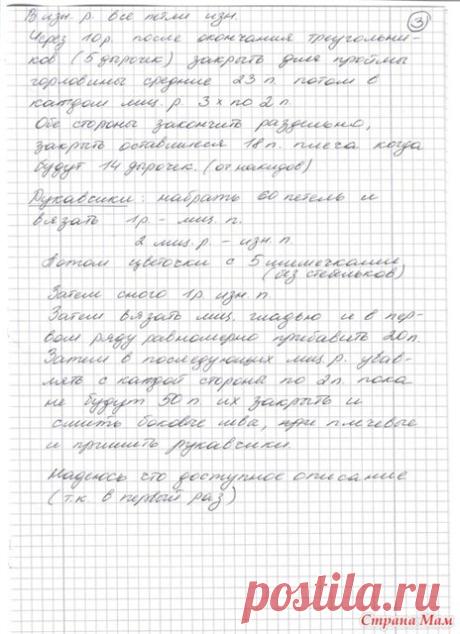 В изн. р. все петли изн.
③
Через 10 р. после окончания треугольни-
ков (5 дырочек) закрыть для проймы
горловины средние 23 п. потом в
каждом лиц. р. 3 х по 2 п.
Обе стороны закончить раздельно,
закрыть оставшиеся 18 п. плеча когда
будут 14 дырочек. (от накидов)
Рукавчики: набрать 60 петель и
вязать 1 р - лиц. п.
2 лиц. р. - изн. п.
Потом цветочки с 5 шишечками
(без стебельков)
Затем снова 1 р. изн. п.
Затем вязать лиц. гладью и в пер-
вом ряду равномерно прибавить 20 п.
Затем в последующих лиц. р. убав-
лять с каждой стороны по 2 п. пока
не будут 50 п их закрыть и
сшить боковые швы, плечевые
и пришить рукавчики.
Надеюсь что доступное описание
(т.к. в первый раз)
postila.ru
Страна Мам